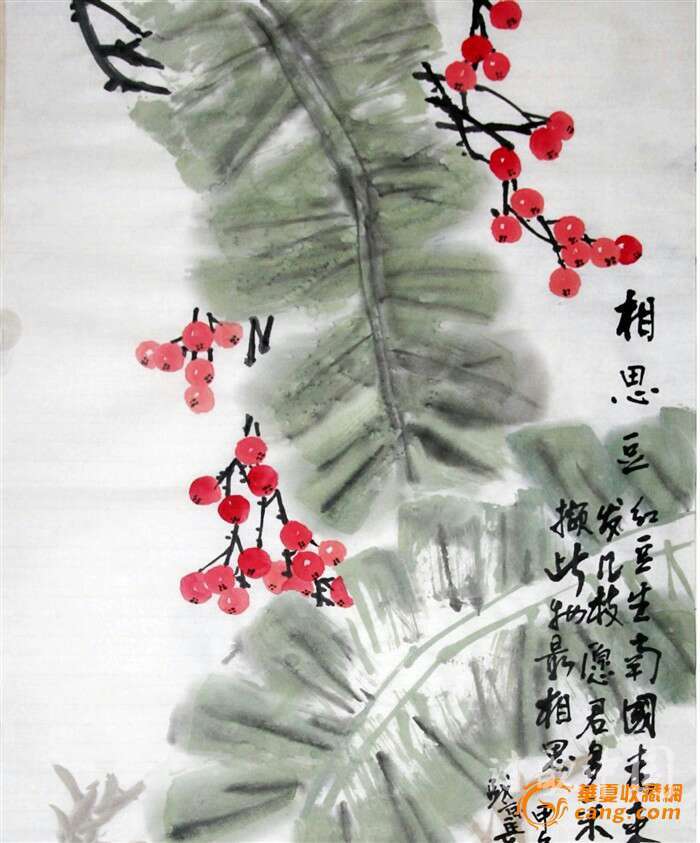 相思豆
红豆生南國春来
发几枝愿君多采
撷此物最相思 甲
華夏收藏網
cang.com